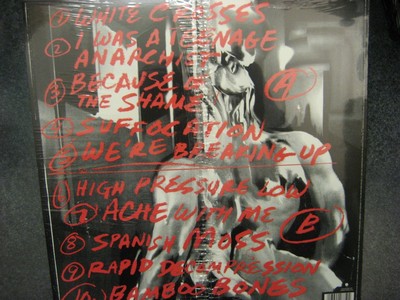 1 WHITE CROSSES
2 I WAS A TEENAGE
ANARCHIST
3 BECAUSE OF
THE SHAME
4 SUFFOCATION
5 WE'RE BREAKING UP
A
6 HIGH PRESSURE LOW
7 ACHE WITH ME
B
8 SPANISH MOSS
9 RAPID DECOMPRESSION
10 BAMBOO BONES